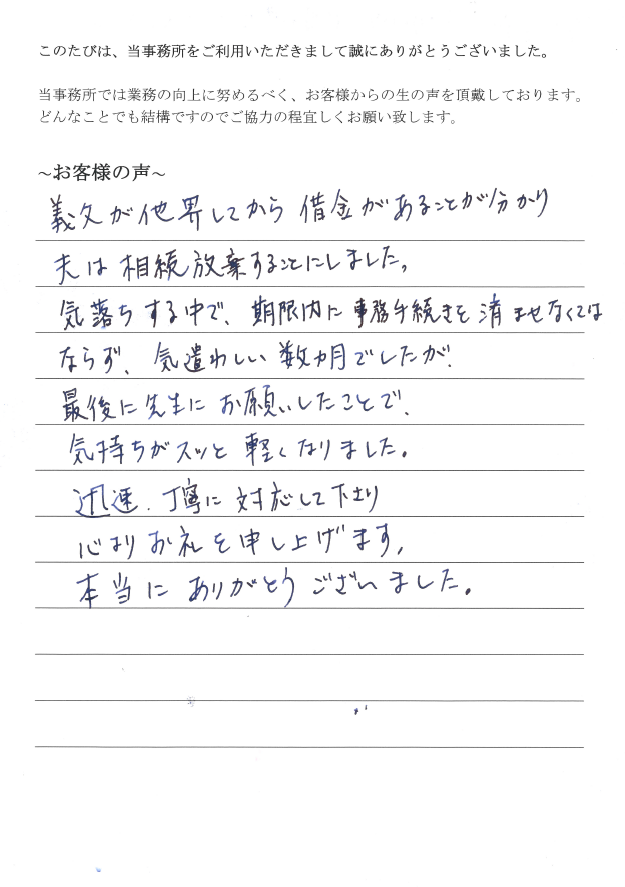 このたびは、当事務所をご利用いただきまして誠にありがとうございました。
当事務所では業務の向上に努めるべく、お客様からの生の声を頂戴しております。
どんなことでも結構ですのでご協力の程宜しくお願い致します。
~お客様の声~
義父が他界してから借金があることが分かり
夫は相続放棄することにしました。
気落ちする中で、期限内に事務手続きを済ませなくては
ならず、気遣わしい数カ月でしたが、
最後に先生にお願いしたことで、
気持ちがスッと軽くなりました。
迅速、丁寧に対応して下さり
心よりお礼を申し上げます。
本当にありがとうございました。